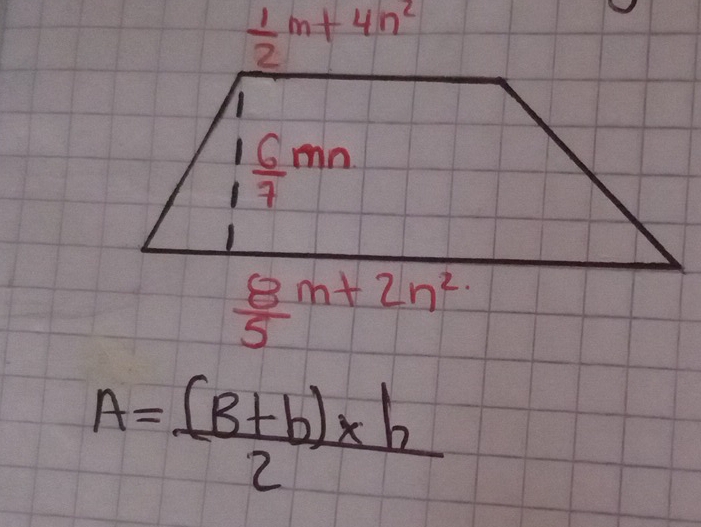 1/2 m + 4n²
6/7 mn
8/5 m + 2n².
A = (B+b) x h / 2